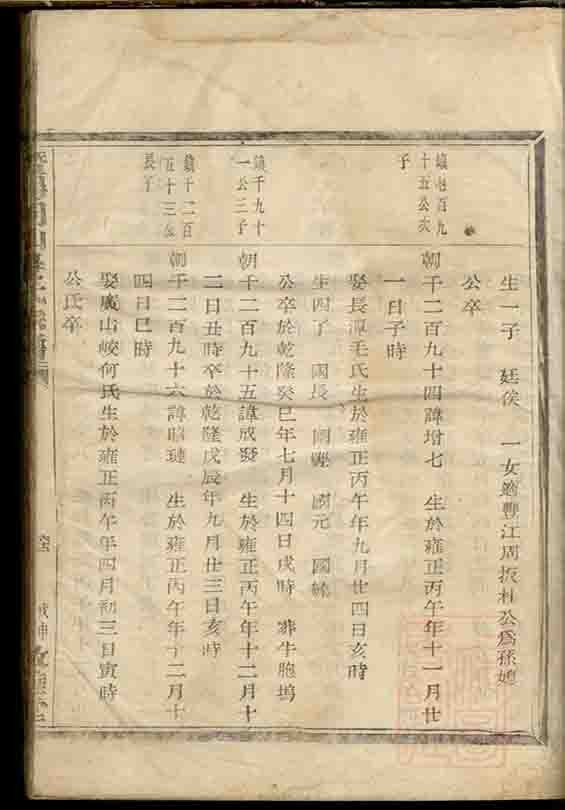 生一子 廷俟 一女適豐江周振杜公爲孫媳
公卒
鎮 百九
十五公次
子
朝千二百九十四諱增七 生於雍正丙午年十一月廿
一日子時
娶長潭毛氏生於雍正丙午年九月廿四日亥時
生四子 國長 國 國元 國
公卒於乾隆癸巳年七月十四日戌時 葬牛胞塢
鎮千九十
一公三子
朝千二百九十五諱成發 生於雍正丙午年十二月十
二日丑時卒於乾隆戊辰年九月廿三日亥時
鎮千二百
五十三公
長子
朝千二百九十六諱昭璉 生於雍正丙午年十二月十
四日巳時
娶廣山峧何氏生於雍正丙午年四月初三日寅時
公氏卒